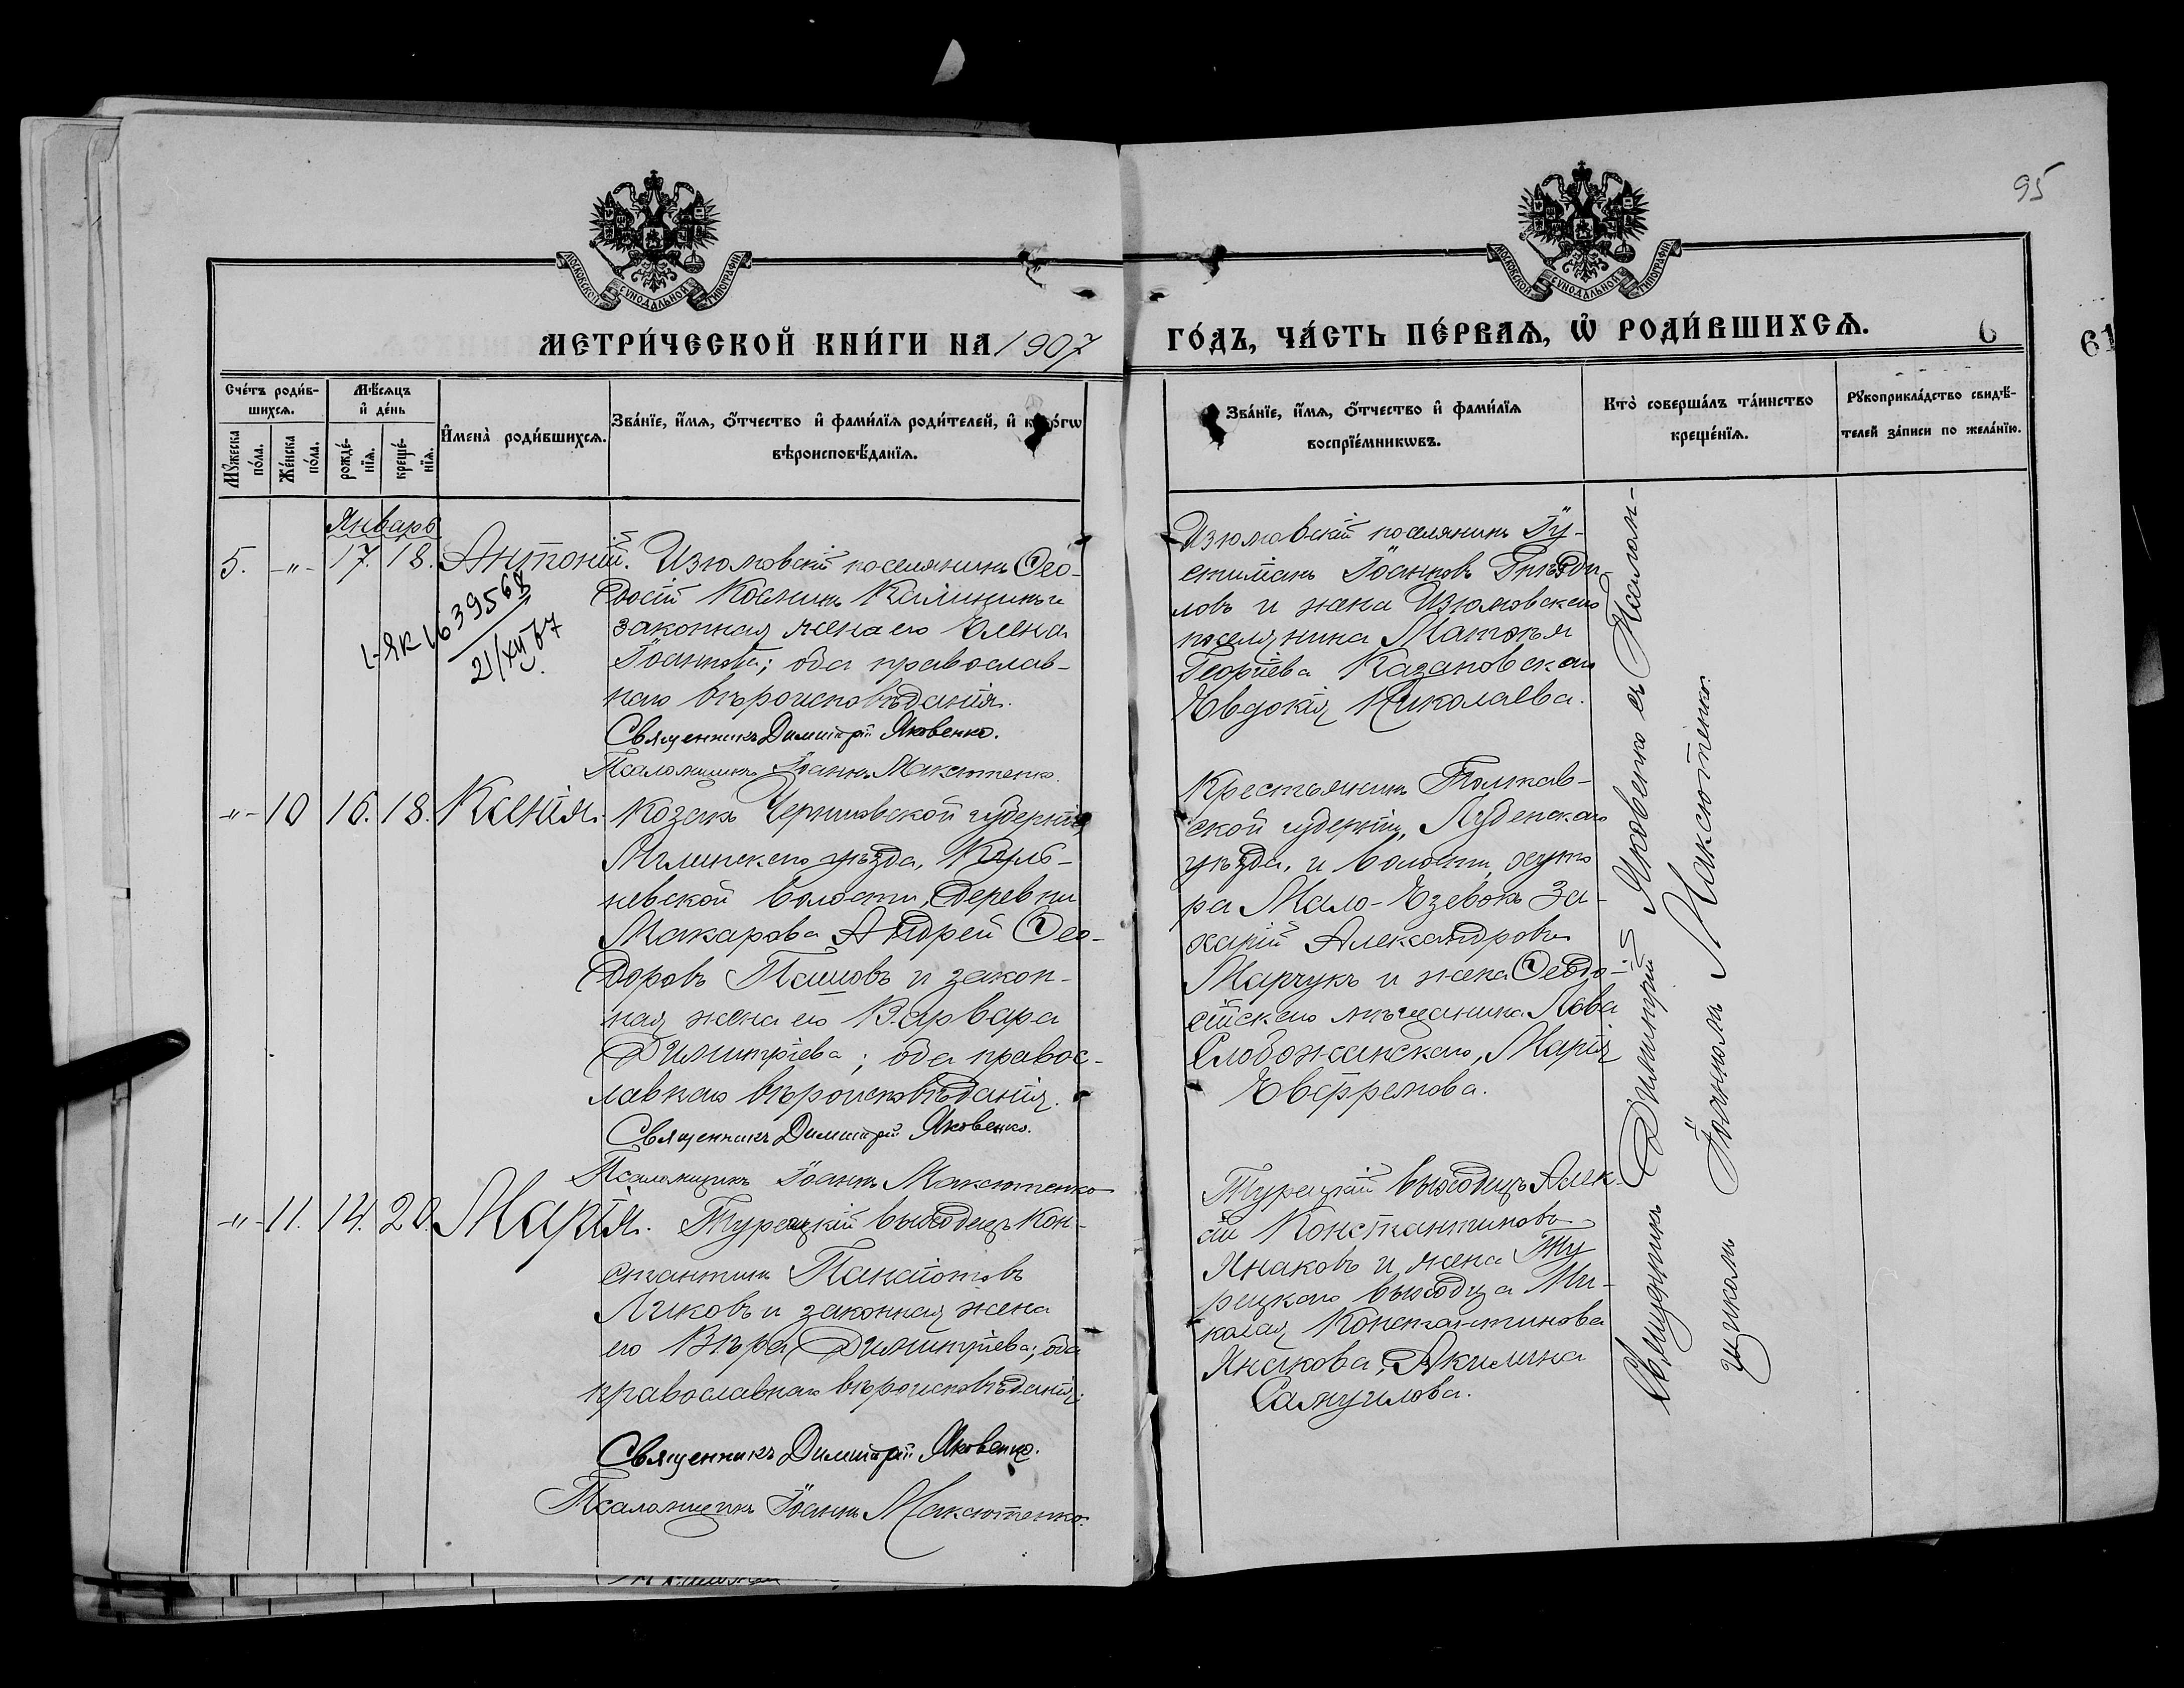 95
МОСКОВСКОЙ СѴНОДАЛЬНОЙ ТИПОГРАФІИ
МОСКОВСКОЙ СѴНОДАЛЬНОЙ ТИПОГРАФІИ
МЕТРИ́ЧЕСКОЙ КНИ́ГИ НА 1907
ГО́ДЪ, ЧА́СТЬ ПЕ́РВАѦ, Ѡ҆ РОДИ́ВШИХСѦ.
6
61
Сче́тъ роди́в-
шихсѧ.
Мꙋ́жеска по́ла.
Же́нска по́ла.
Мѣ́сѧцъ
и҆ де́нь
рожде́-
нїѧ.
креще́-
нїѧ.
И҆мена̀ роди́вшихсѧ.
Зва́нїе, и҆́мѧ, ѻ҆́тчество и҆ фами́лїѧ роди́телей, и҆
вѣроисповѣ́данїѧ.
Зва́нїе, и҆́мѧ, ѻ҆́тчество и҆ фами́лїѧ
воспрїе́мникѡвъ.
Кто̀ соверша́лъ та́инство
креще́нїѧ.
Рꙋкоприкла́дство свидѣ́-
телей за́писи по жела́нїю.
Январь
5. -"- 17. 18. Антоній.
21/XII 67
Изюмовскій поселянинъ Ѳео-
досій Косминъ Калинцинъ и
законная жена его Елена
Іоаннова; оба православ-
наго вѣроисповѣданія.
Священникъ Димитрій Яковенко.
Псаломщикъ Іоаннъ Максютенко.
Изюмовскій поселянинъ Іу-
стиніанъ Іоанновъ Гнѣзди-
ловъ и жена Изюмовскаго
поселянина Матѳея
Георгіева Казановскаго
Евдокія Николаева.
-"- 10 16. 18. Ксенія.
Козакъ Черниговской губерніи
Мглинскаго уѣзда,
невской волости, деревни
Макарова Андрей Ѳео-
доровъ Пашовъ и закон-
ная жена его Варвара
Димитріева; оба правос-
лавнаго вѣроисповѣданія.
Священникъ Димитрій Яковенко.
Псаломщикъ Іоаннъ Максютенко
Крестьянинъ Полтав-
ской губерніи, Лубенскаго
уѣзда, и волости, хуто
ра Мало-Езевокъ За-
харій Александровъ
Марчукъ и жена Ѳеодо-
сійскаго мѣщанина Лова
Слобожанскаго, Марія
Евфремова.
-"- 11. 14. 20. Марія.
Турецкій выходецъ Кон-
стантинъ Панаіотовъ
Личовъ и законная жена
его Вѣра Димитріева; оба
православнаго вѣроисповѣданія.
Священникъ Димитрій Яковенко.
Псаломщикъ Іоаннъ Максютенко.
Турецкій выходецъ Алек-
сій Константиновъ
Янаковъ и жена Ту
рецкаго выходца Ни-
колая Константинова
Янакова, Акилина
Самуилова.
Священникъ Димитрій Яковенко съ Псалом-
щикомъ Іоанномъ Максютенко.